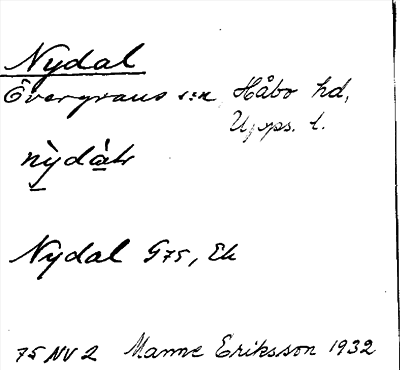 Nydal
Övergrans s:n Håbo hd,
Upps. l.
nỳdàlr
Nydal G75, Ek
75 NV 2 Manne Eriksson 1932